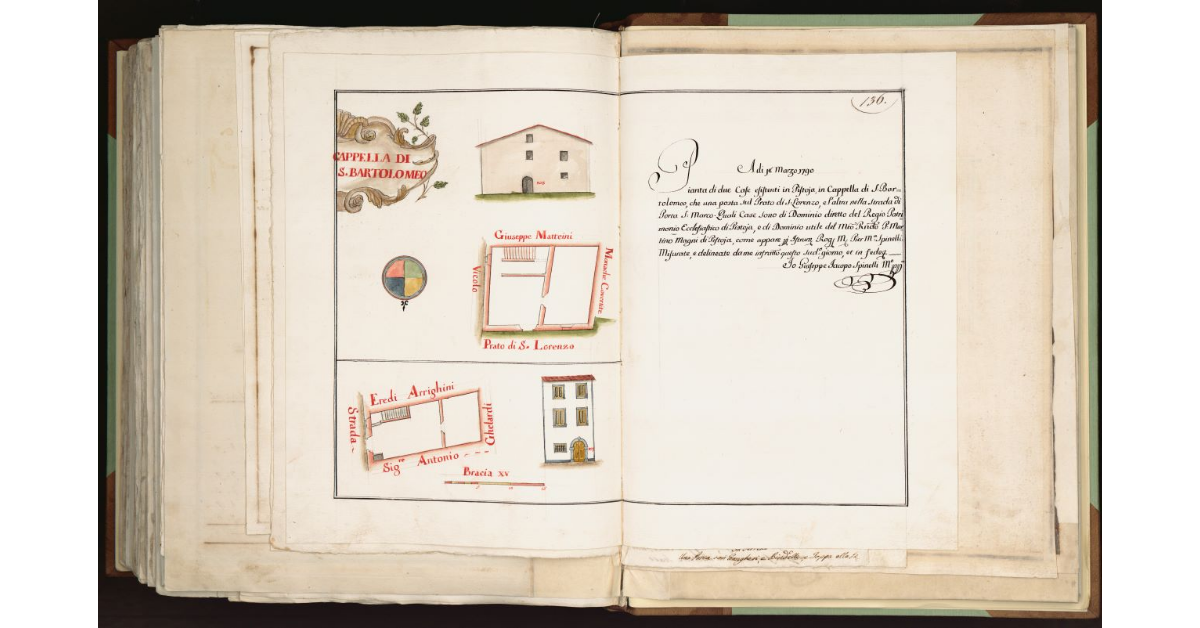 CAPPELLA DI
S. BARTOLOMEO
Giuseppe Matteini
Vicolo
Monache Convertite
Prato di S. Lorenzo
Eredi Arrighini
Strada
Ghelardi
Sig.re Antonio
Bracia xv
136.
A di 16 Marzo 1790
Pianta di due Case esistenti in Pistoja, in Cappella di S. Bar-
tolomeo, che una posta sul Prato di S. Lorenzo, e l'altra nella Strada di
Porta S. Marco. Quali Case sono di Dominio diretto del Regio Patri
monio Ecclesiastico di Pistoja, e di Dominio utile del Mto. Rndo. P. Mar
tino Magni di Pistoja, come appare p. Istrum. Rog. M. Pier Ma. Spinelli.
Misurate, e delineate da me infratto questo sud. giorno, et in fede
Io Giuseppe Jacopo Spinelli